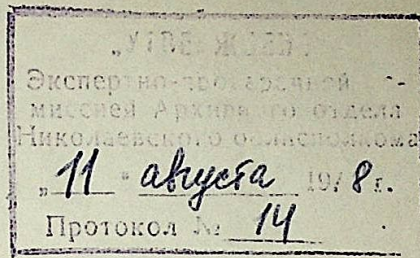 „УТВЕРЖДЕНО"
Экспертно-проверочной ко-
миссией Архивного отдела
Николаевского облисполкома
„11" августа 1978 г.
Протокол № 14